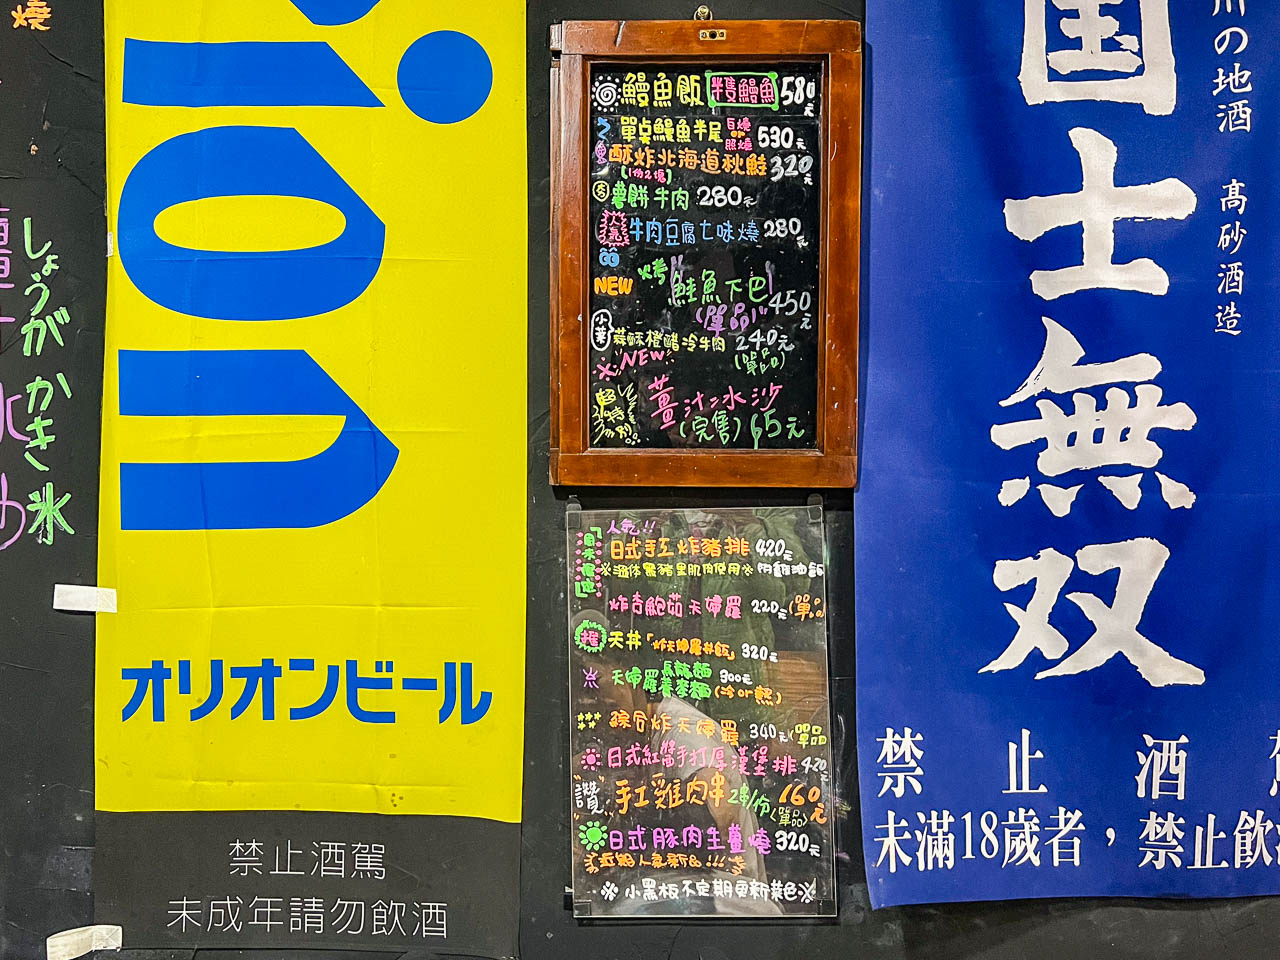 燒
しょうが かき氷
rion
オリオンビール
禁止酒駕
未成年請勿飲酒
鰻魚飯 半隻鰻魚 580元
單桌鰻魚半尾 白燒 or 照燒 530元
酥炸北海道秋鮭 320元
(1份2塊)
薯餅牛肉 280元
人氣 牛肉豆腐七味燒 280元
NEW 烤鮭魚下巴 450元
(單品)
小菜 蒜酥橙醋冷牛肉 240元
(單品)
NEW
超特別 薑汁冰沙
(完售) 65元
人氣!!
日式手工炸豬排 420元
※溫体黑豬里肌肉使用※ 附雞油飯
炸杏鮑菇天婦羅 220元(單品
推 天丼「炸天婦羅丼飯」 320元
天婦羅烏龍麵
蕎麥麵 300元
(冷or熱)
綜合炸天婦羅 340元(單品
日式紅醬手打厚漢堡排 420元
"讚" 手工雞肉串 2串/份 160元
(單品)
日式豚肉生薑燒 320元
近期人氣新品!!!
※小黑板不定期更新菜色※
国士無双
川の地酒 高砂酒造
禁止酒駕
未滿18歲者，禁止飲酒